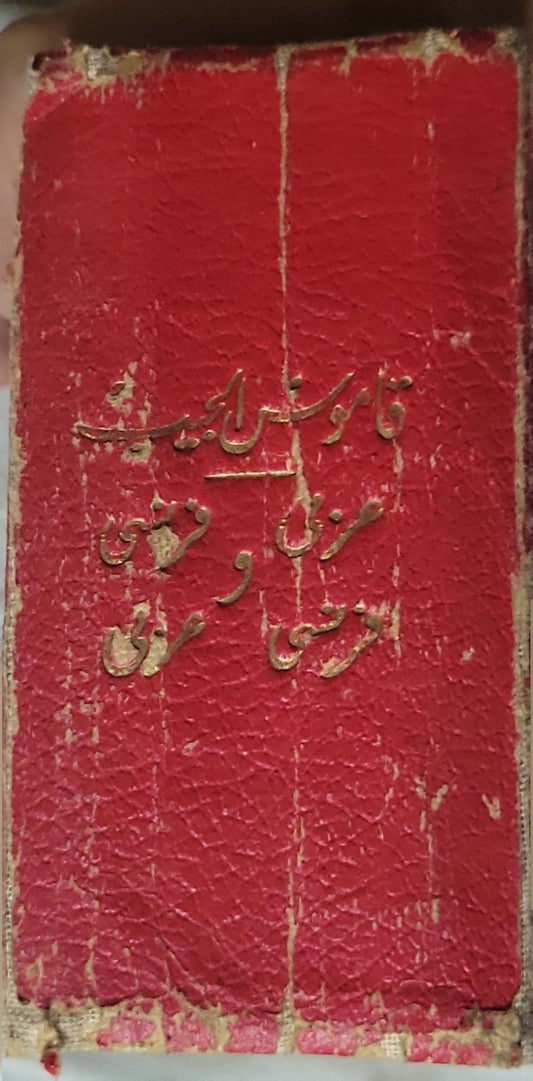 قاموس الجيب
عربي فرنسي
و
فرنسي عربي